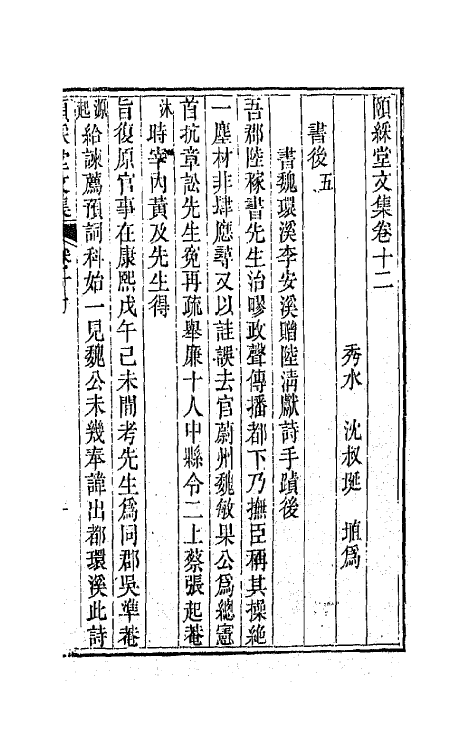 頤綵堂文集卷十二
秀水 沈叔埏 埴爲
書後五
書魏環溪李安溪贈陸清獻詩手蹟後
吾郡陸稼書先生治嘐政聲傳播都下乃撫臣稱其操絶
一塵材非堪應尋又以詿誤去官蔚州魏敏果公爲總憲
首抗章訟先生寃再疏舉廉十人中縣令二上蔡張起菴
沐時宰內黃及先生得
旨復原官事在康熙戊午己未間考先生爲同郡吳準菴
源起給諫薦預詞科始一見魏公未幾奉諱出都環溪此詩
頤綵堂文集
卷十二
一